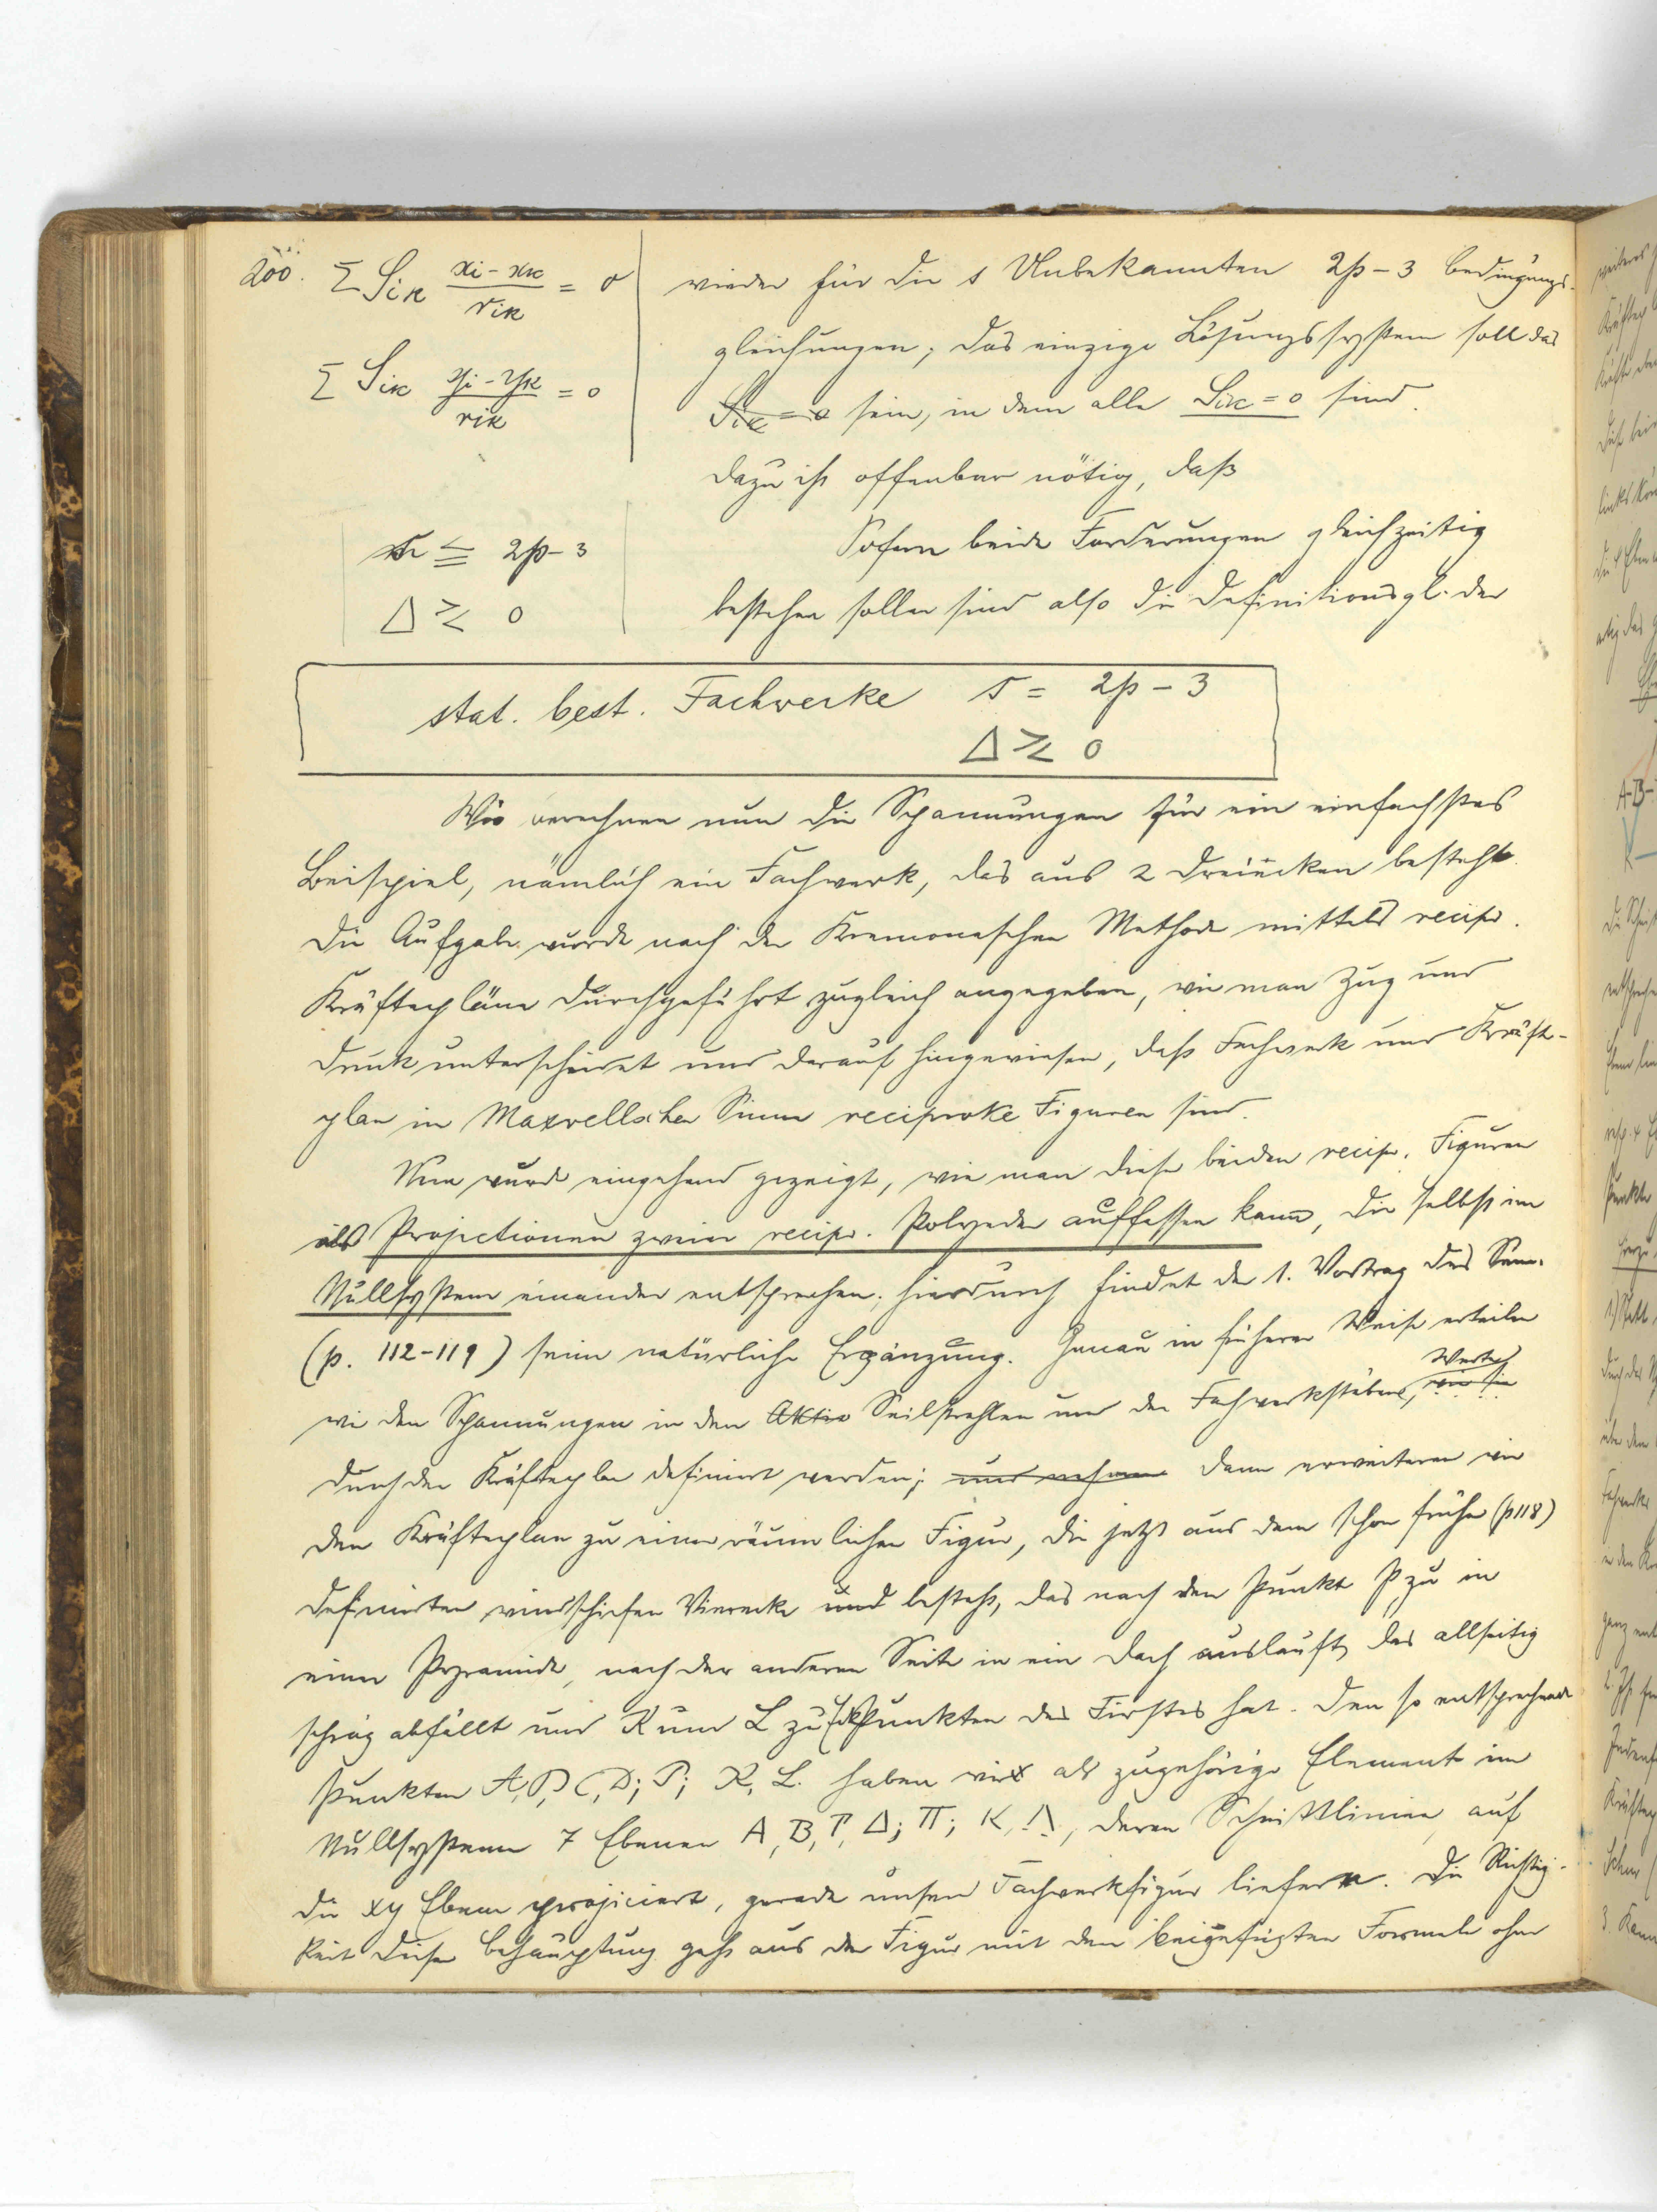 200. Σ Sik (xi - xk)/rik = 0 wieder für die s Unbekannten 2p-3 Bedingungs-
gleichungen; das einzige Lösungssystem soll das
Σ Sik (yi - yk)/rik = 0
Sik = 0 sein, in dem alle Sik = 0 sind.
Dazu ist offenbar nötig, daß
s ≦ 2p-3
Sofern beide Forderungen gleichzeitig
Δ ≷ 0
bestehen sollen sind also die Definitionsgl. der
stat. best. Fachwerke s = 2p - 3
Δ ≷ 0
Wir berechnen nun die Spannungen für ein einfachstes
Beispiel, nämlich ein Fachwerk, das aus 2 Dreiecken besteht.
Die Aufgabe wurde nach der Kremonaschen Methode mittels recipr.
Kräftepläne durchgeführt zugleich angegeben, wie man Zug und
Druck unterscheidet und darauf hingewiesen, daß Fachwerk und Kräfte-
plan im Maxwellschen Sinne reciproke Figuren sind.
Nun wurde eingehend gezeigt, wie man diese beiden recipr. Figuren
als Projectionen zweier recipr. Polyeder auffassen kann, die selbst im
Nullsystem einander entsprechen; hierdurch findet der 1. Vortrag des Sem.
(p. 112-119) seine natürliche Ergänzung. Genau in früherer Weise erteilen
Werte
wir den Spannungen in den Aktio Seilstrahlen und den Fachwerkstäben, wie sie
durch den Kräfteplan definiert werden; und nehmen dann erweitern wir
den Kräfteplan zu einer räumlichen Figur, die jetzt aus dem schon früher (p118)
definierten windschiefen Vierecke und besteht, das nach dem Punkt P zu in
einer Pyramide, nach der anderen Seite in ein Dach ausläuft, das allseitig
schräg abfällt und K und L zu Eckpunkten des Firstes hat. Den so entsprechenden
Punkten A, B, C, D; P; K, L. haben wir als zugehörige Elemente im
Nullsystem 7 Ebenen Α, Β, Γ, Δ; Π; Κ, Λ, deren Schnittlinien, auf
die xy Ebene projiciert, gerade unsere Fachwerkfigur liefern. Die Richtig-
keit dieser Behauptung geht aus der Figur mit den beigefügten Formeln ohne